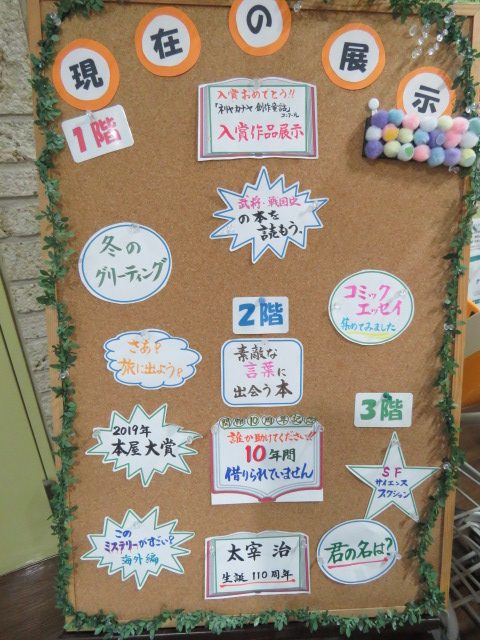 現在の展示
1階
入賞おめでとう!!
入賞作品展示
武将・戦国史
の本を
読もう。
冬の
グリーティング
2階
コミック
エッセイ
集めてみました
さあ?
旅に出よう?
素敵な
言葉に
出会う本
3階
2019年
本屋大賞
開館10周年記念
誰か助けてください!!
10年間
借りられていません
SF
サイエンス
フィクション
この
ミステリーがすごい?
海外編
太宰 治
生誕110周年
君の名は?